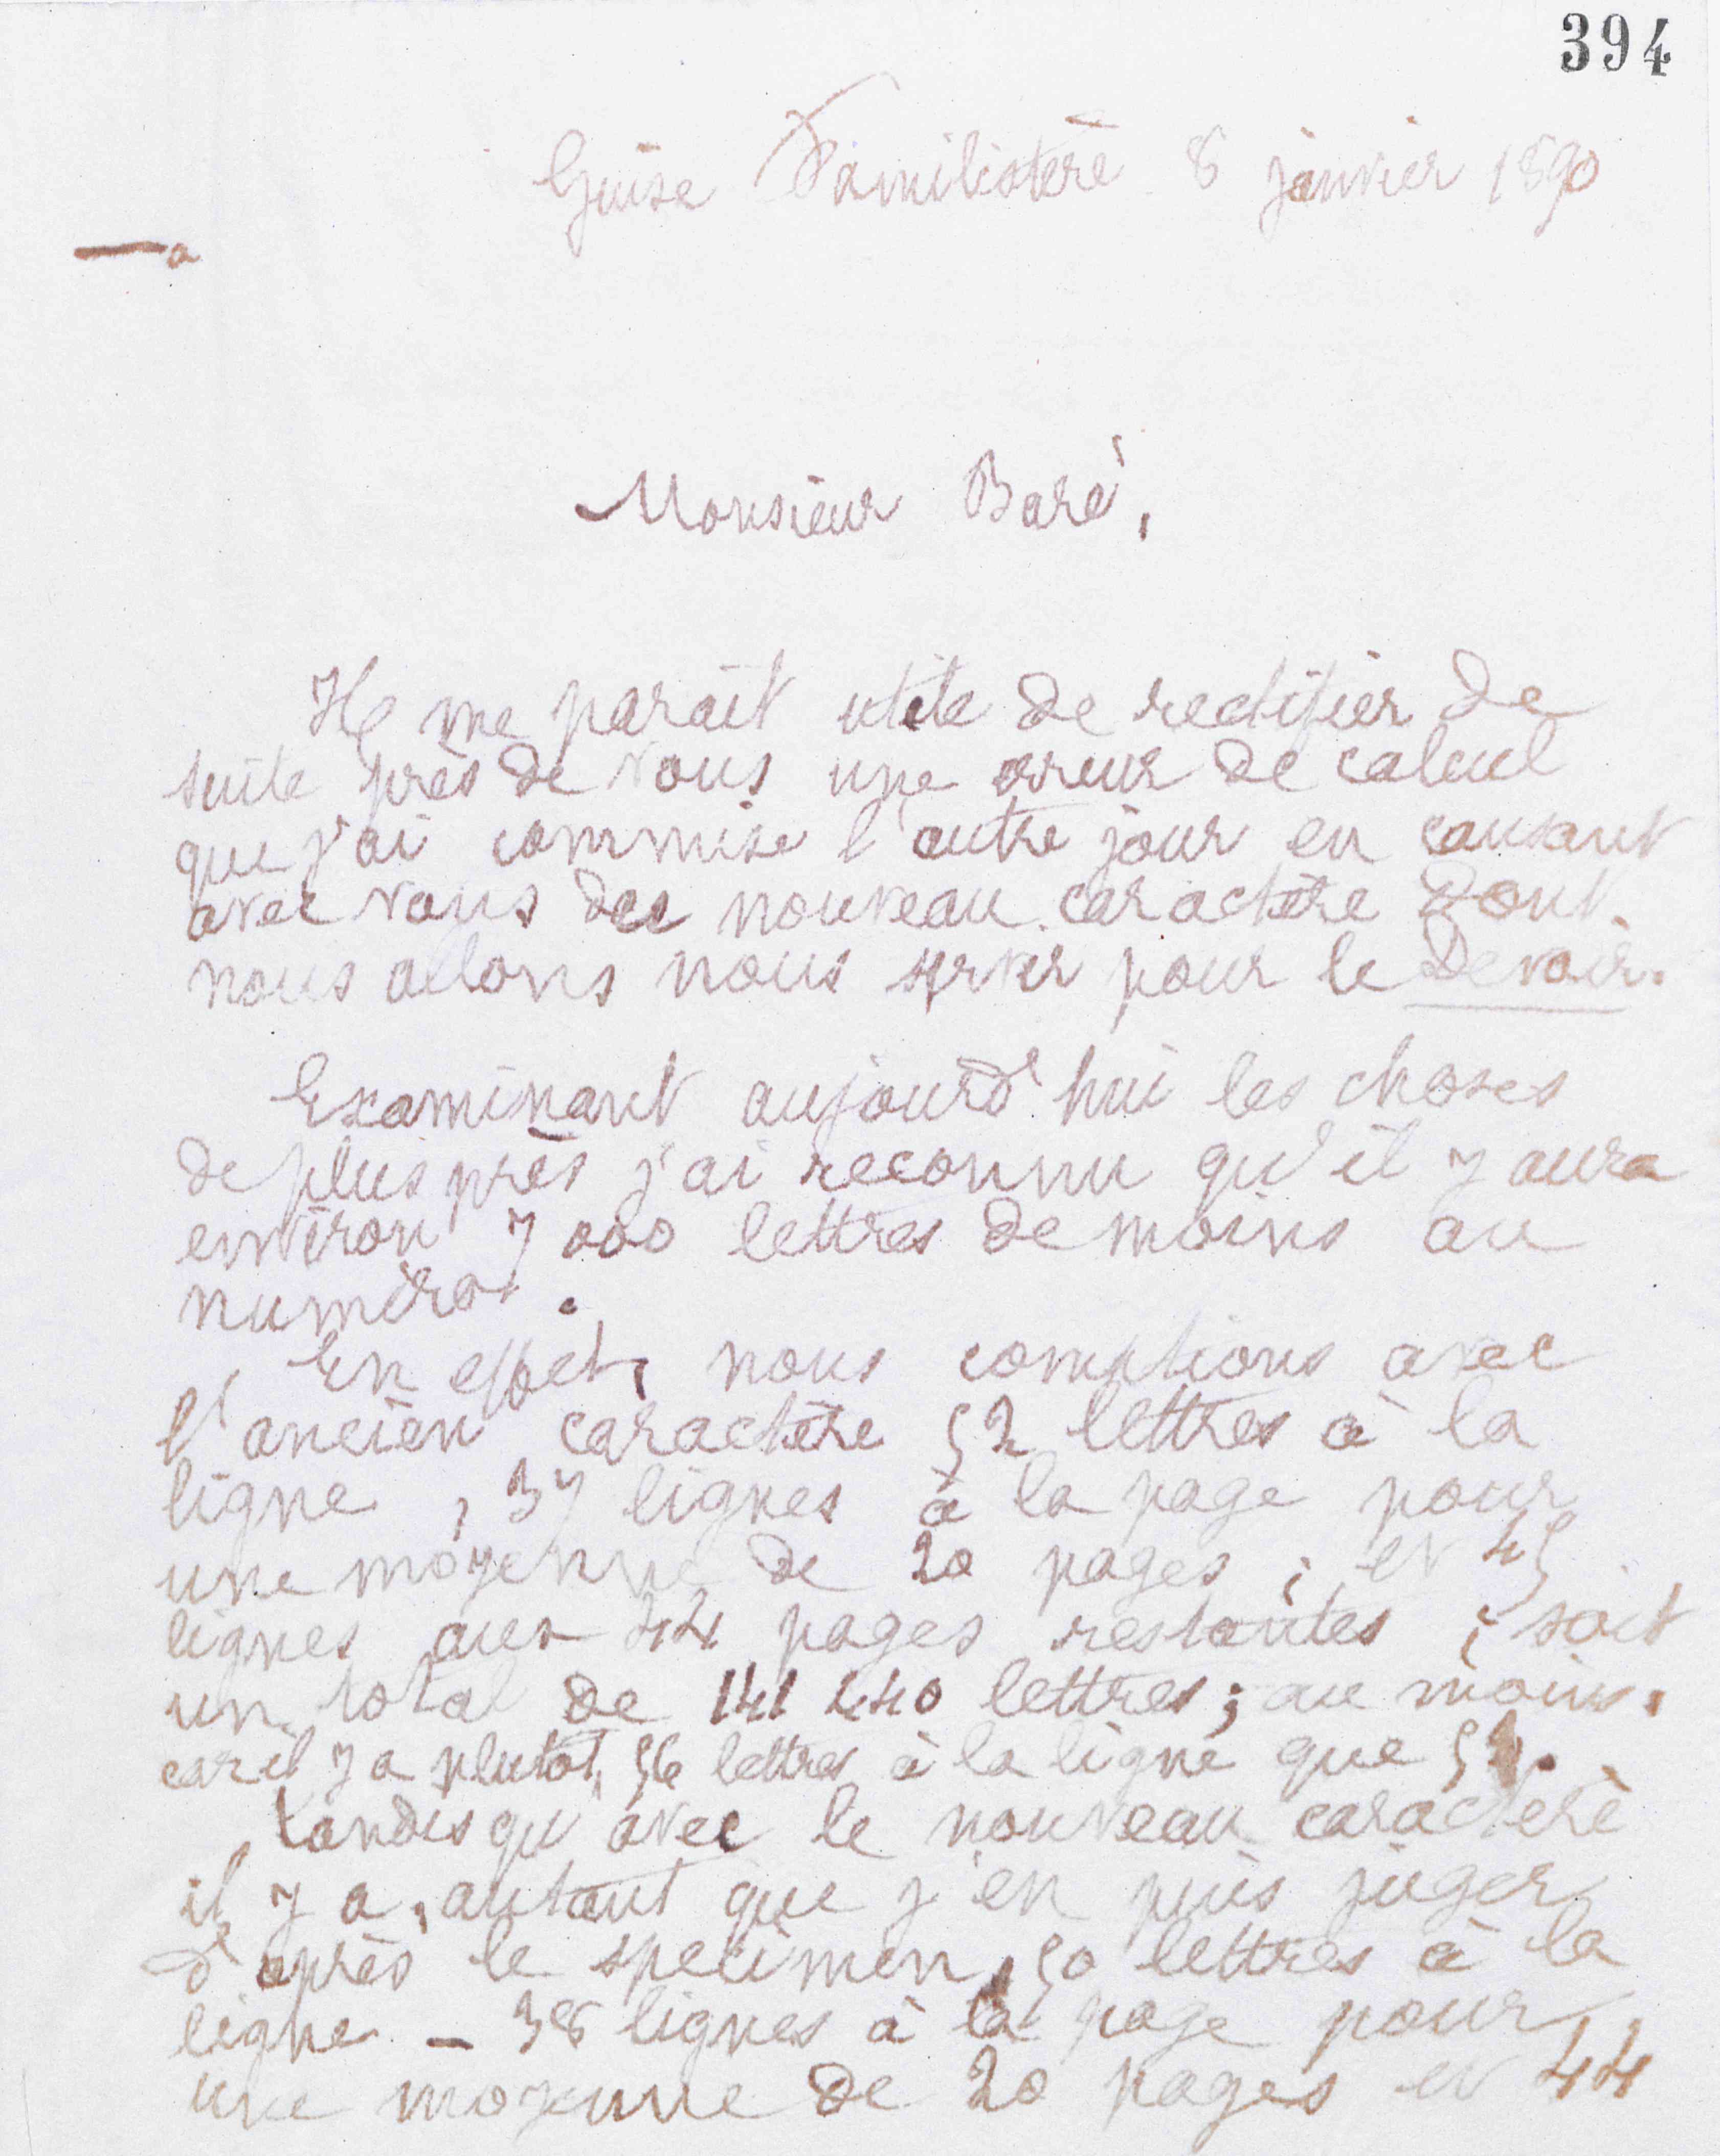 394
Guise Familistère 8 janvier 1890
Monsieur Baré,
Il me parait utile de rectifier de
suite près de vous une erreur de calcul
que j'ai commise l'autre jour en causant
avec vous du nouveau caractère dont
nous allons nous servir pour le Devoir.
Examinant aujourd'hui les choses
de plus près j'ai reconnu qu'il y aura
environ 7 000 lettres de moins au
numéro.
En effet, nous comptions avec
l'ancien caractère 52 lettres à la
ligne, 37 lignes à la page pour
une moyenne de 20 pages ; et 45
lignes aux 44 pages restantes ; soit
un total de 141 440 lettres ; au moins.
car il y a plutôt 56 lettres à la ligne que 52.
tandis qu'avec le nouveau caractère
il y a, autant que j'en puis juger
d'après le specimen, 50 lettres à la
ligne – 38 lignes à la page pour
une moyenne de 20 pages et 44